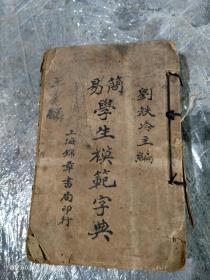 劉扶冷主編
簡易學生模範字典
上海錦章書局印行